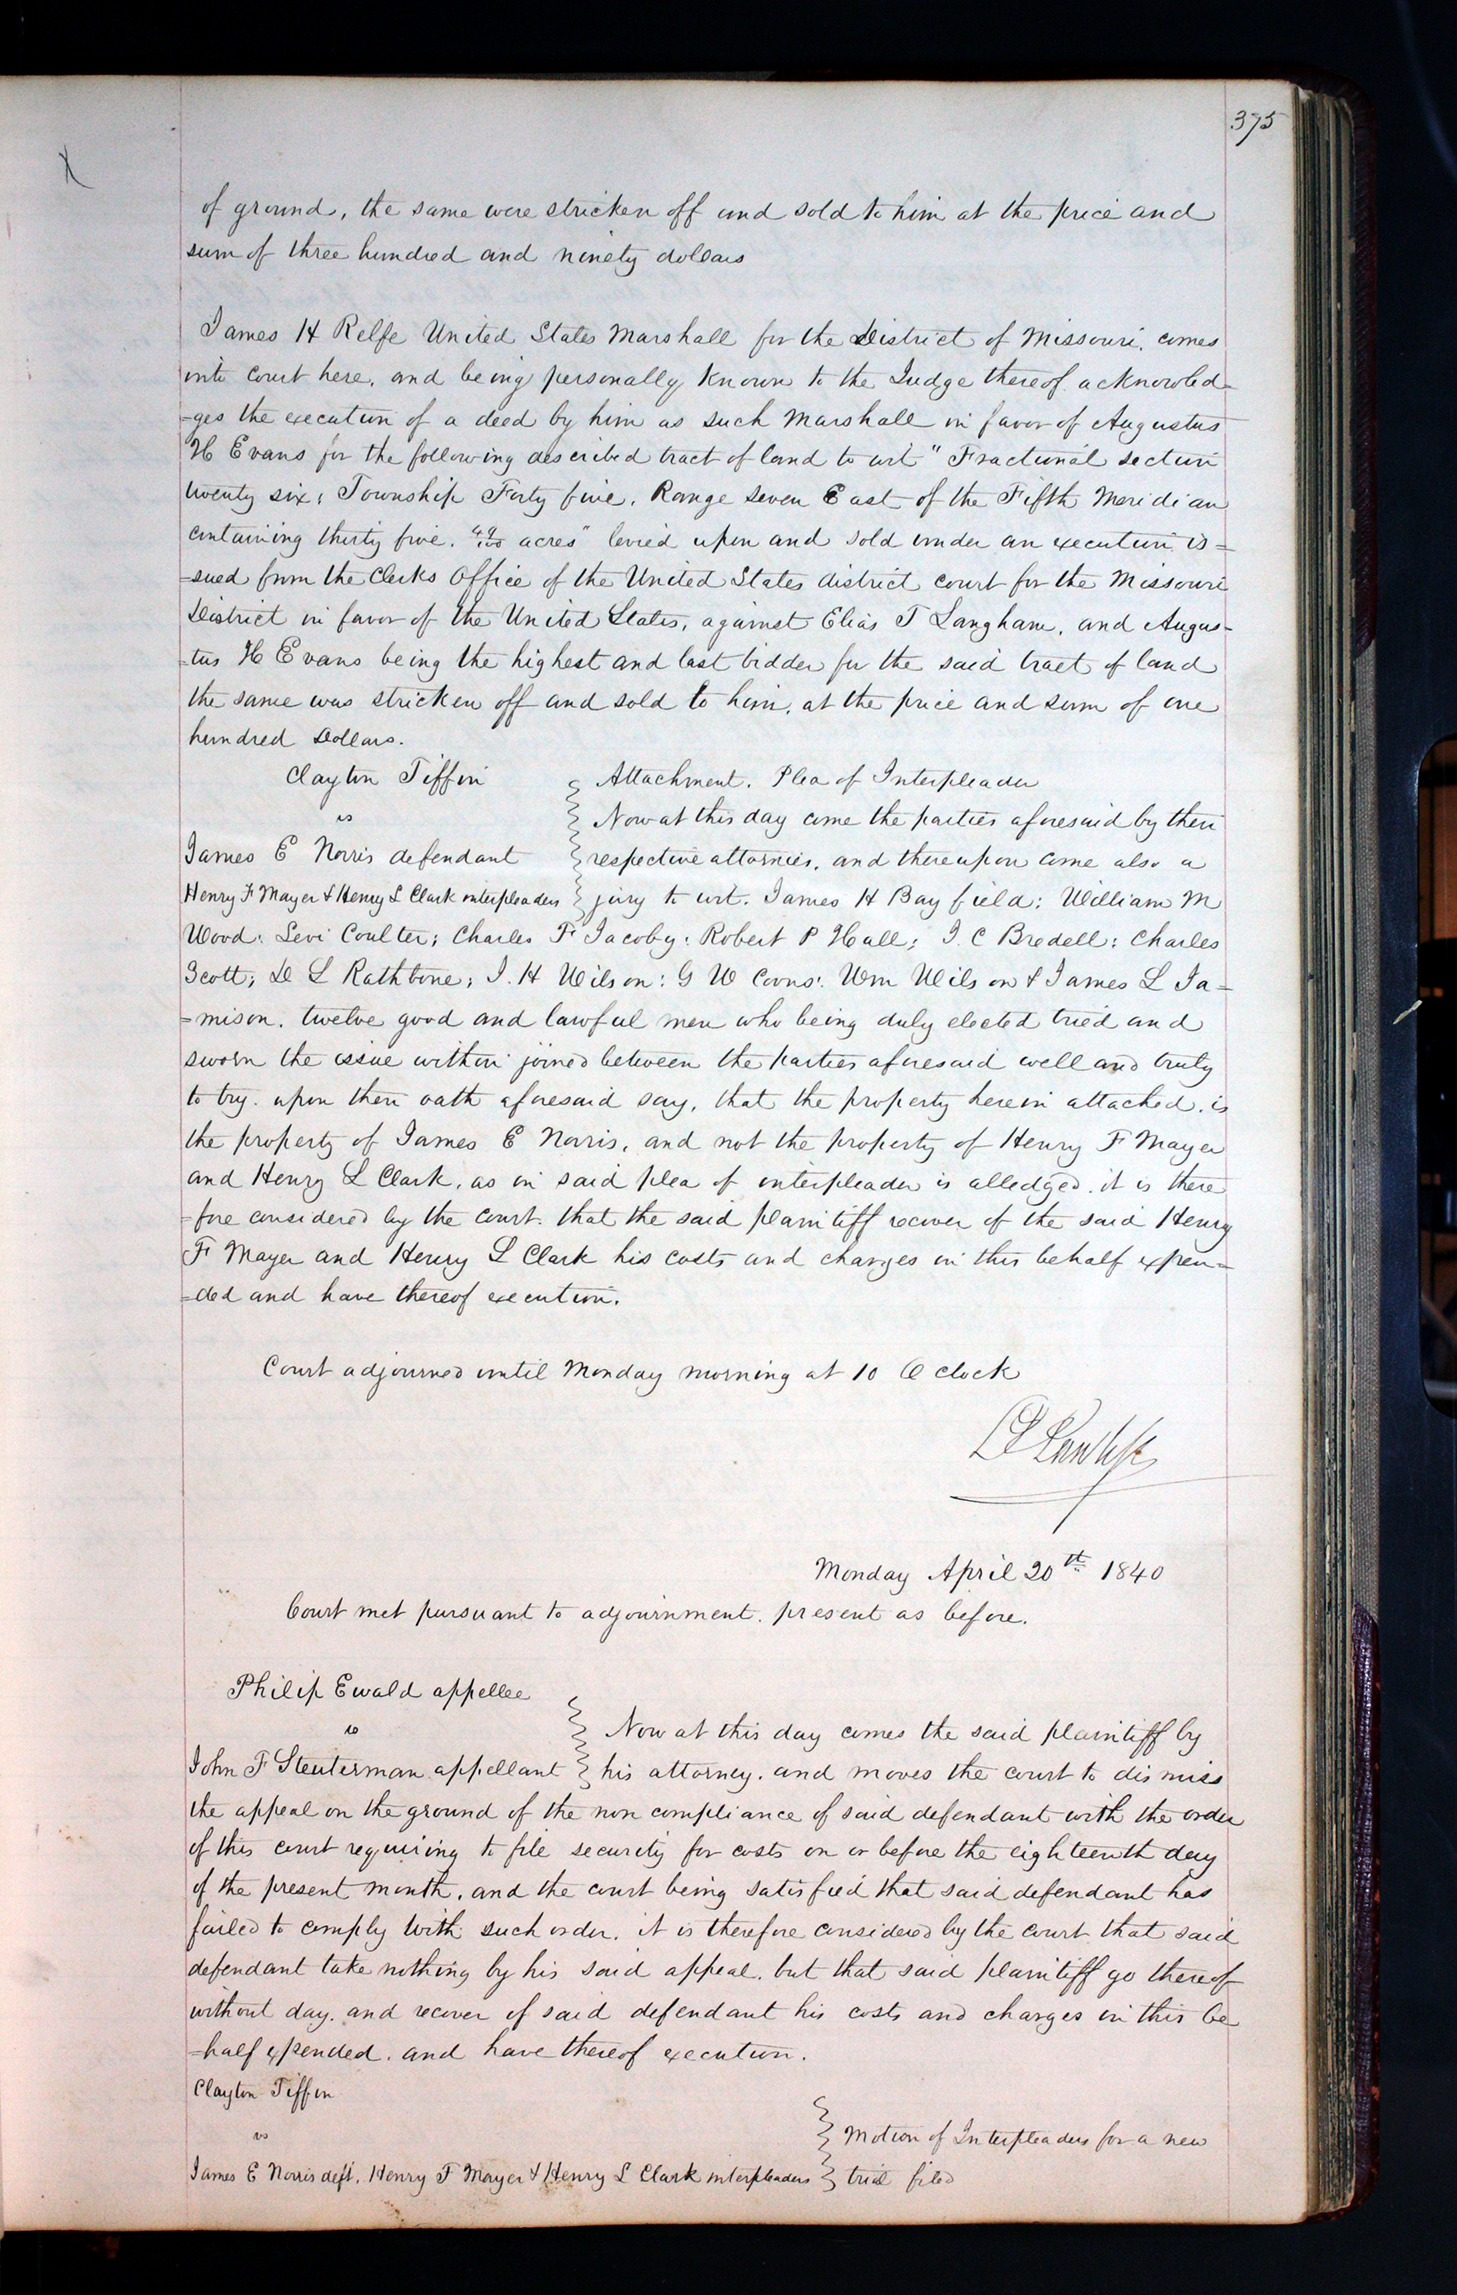 375
of ground, the same were stricken off and sold to him at the price and
sum of three hundred and ninety dollars
James H Relfe United States Marshall for the District of Missouri. comes
into court here, and being personally known to the Judge thereof acknowled-
-ges the execution of a deed by him as such Marshall in favor of Augustus
H Evans for the following described tract of land to wit "Fractional section
twenty six, Township Forty five, Range seven East of the Fifth Meridian
containing thirty five. 49/100 acres" levied upon and sold under an execution is=
=sued from the Clerks Office of the United States district court for the Missouri
District in favor of the United States, against Elias T Langham, and Augus-
-tus H Evans being the highest and last bidder for the said tract of land
the same was stricken off and sold to him, at the price and sum of one
hundred Dollars.
Clayton Tiffin
vs
James E Norris defendant
Henry F Mayer & Henry L Clark interpleaders
Attachment. Plea of Interpleader
Now at this day come the parties aforesaid by their
respective attornies, and thereupon come also a
jury to wit. James H Bayfield: William M
Wood: Levi Coulter; Charles F Jacoby: Robert P Hall; J. C Bredell: Charles
Scott; D L Rathbone; J. H Wilson: G W Coons: Wm Wilson & James L Ja-
-mison. twelve good and lawful men who being duly elected tried and
sworn the issue within joined between the parties aforesaid well and truly
to try. upon their oath aforesaid say, that the property herein attached. is
the property of James E Norris, and not the property of Henry F Mayer
and Henry L Clark, as in said plea of interpleader is alledged. it is there
-fore considered by the court. that the said plaintiff recover of the said Henry
F Mayer and Henry L Clark his costs and charges in this behalf expen=
=ded and have thereof execution.
Court adjourned until Monday morning at 10 O clock
Monday April 20th 1840
Court met pursuant to adjournment. present as before.
Philip Ewald appellee
vs
John F Steuterman appellant
Now at this day comes the said plaintiff by
his attorney. and moves the court to dismiss
the appeal on the ground of the non compliance of said defendant with the order
of this court requiring to file security for costs on or before the eighteenth day
of the present month, and the court being satisfied that said defendant has
failed to comply with such order. it is therefore considered by the court that said
defendant take nothing by his said appeal. but that said plaintiff go thereof
without day. and recover of said defendant his costs and charges in this be
-half expended. and have thereof execution.
Clayton Tiffin
vs
James E Norris deft. Henry F Mayer & Henry L Clark interpleaders
Motion of Interpleaders for a new
trial filed